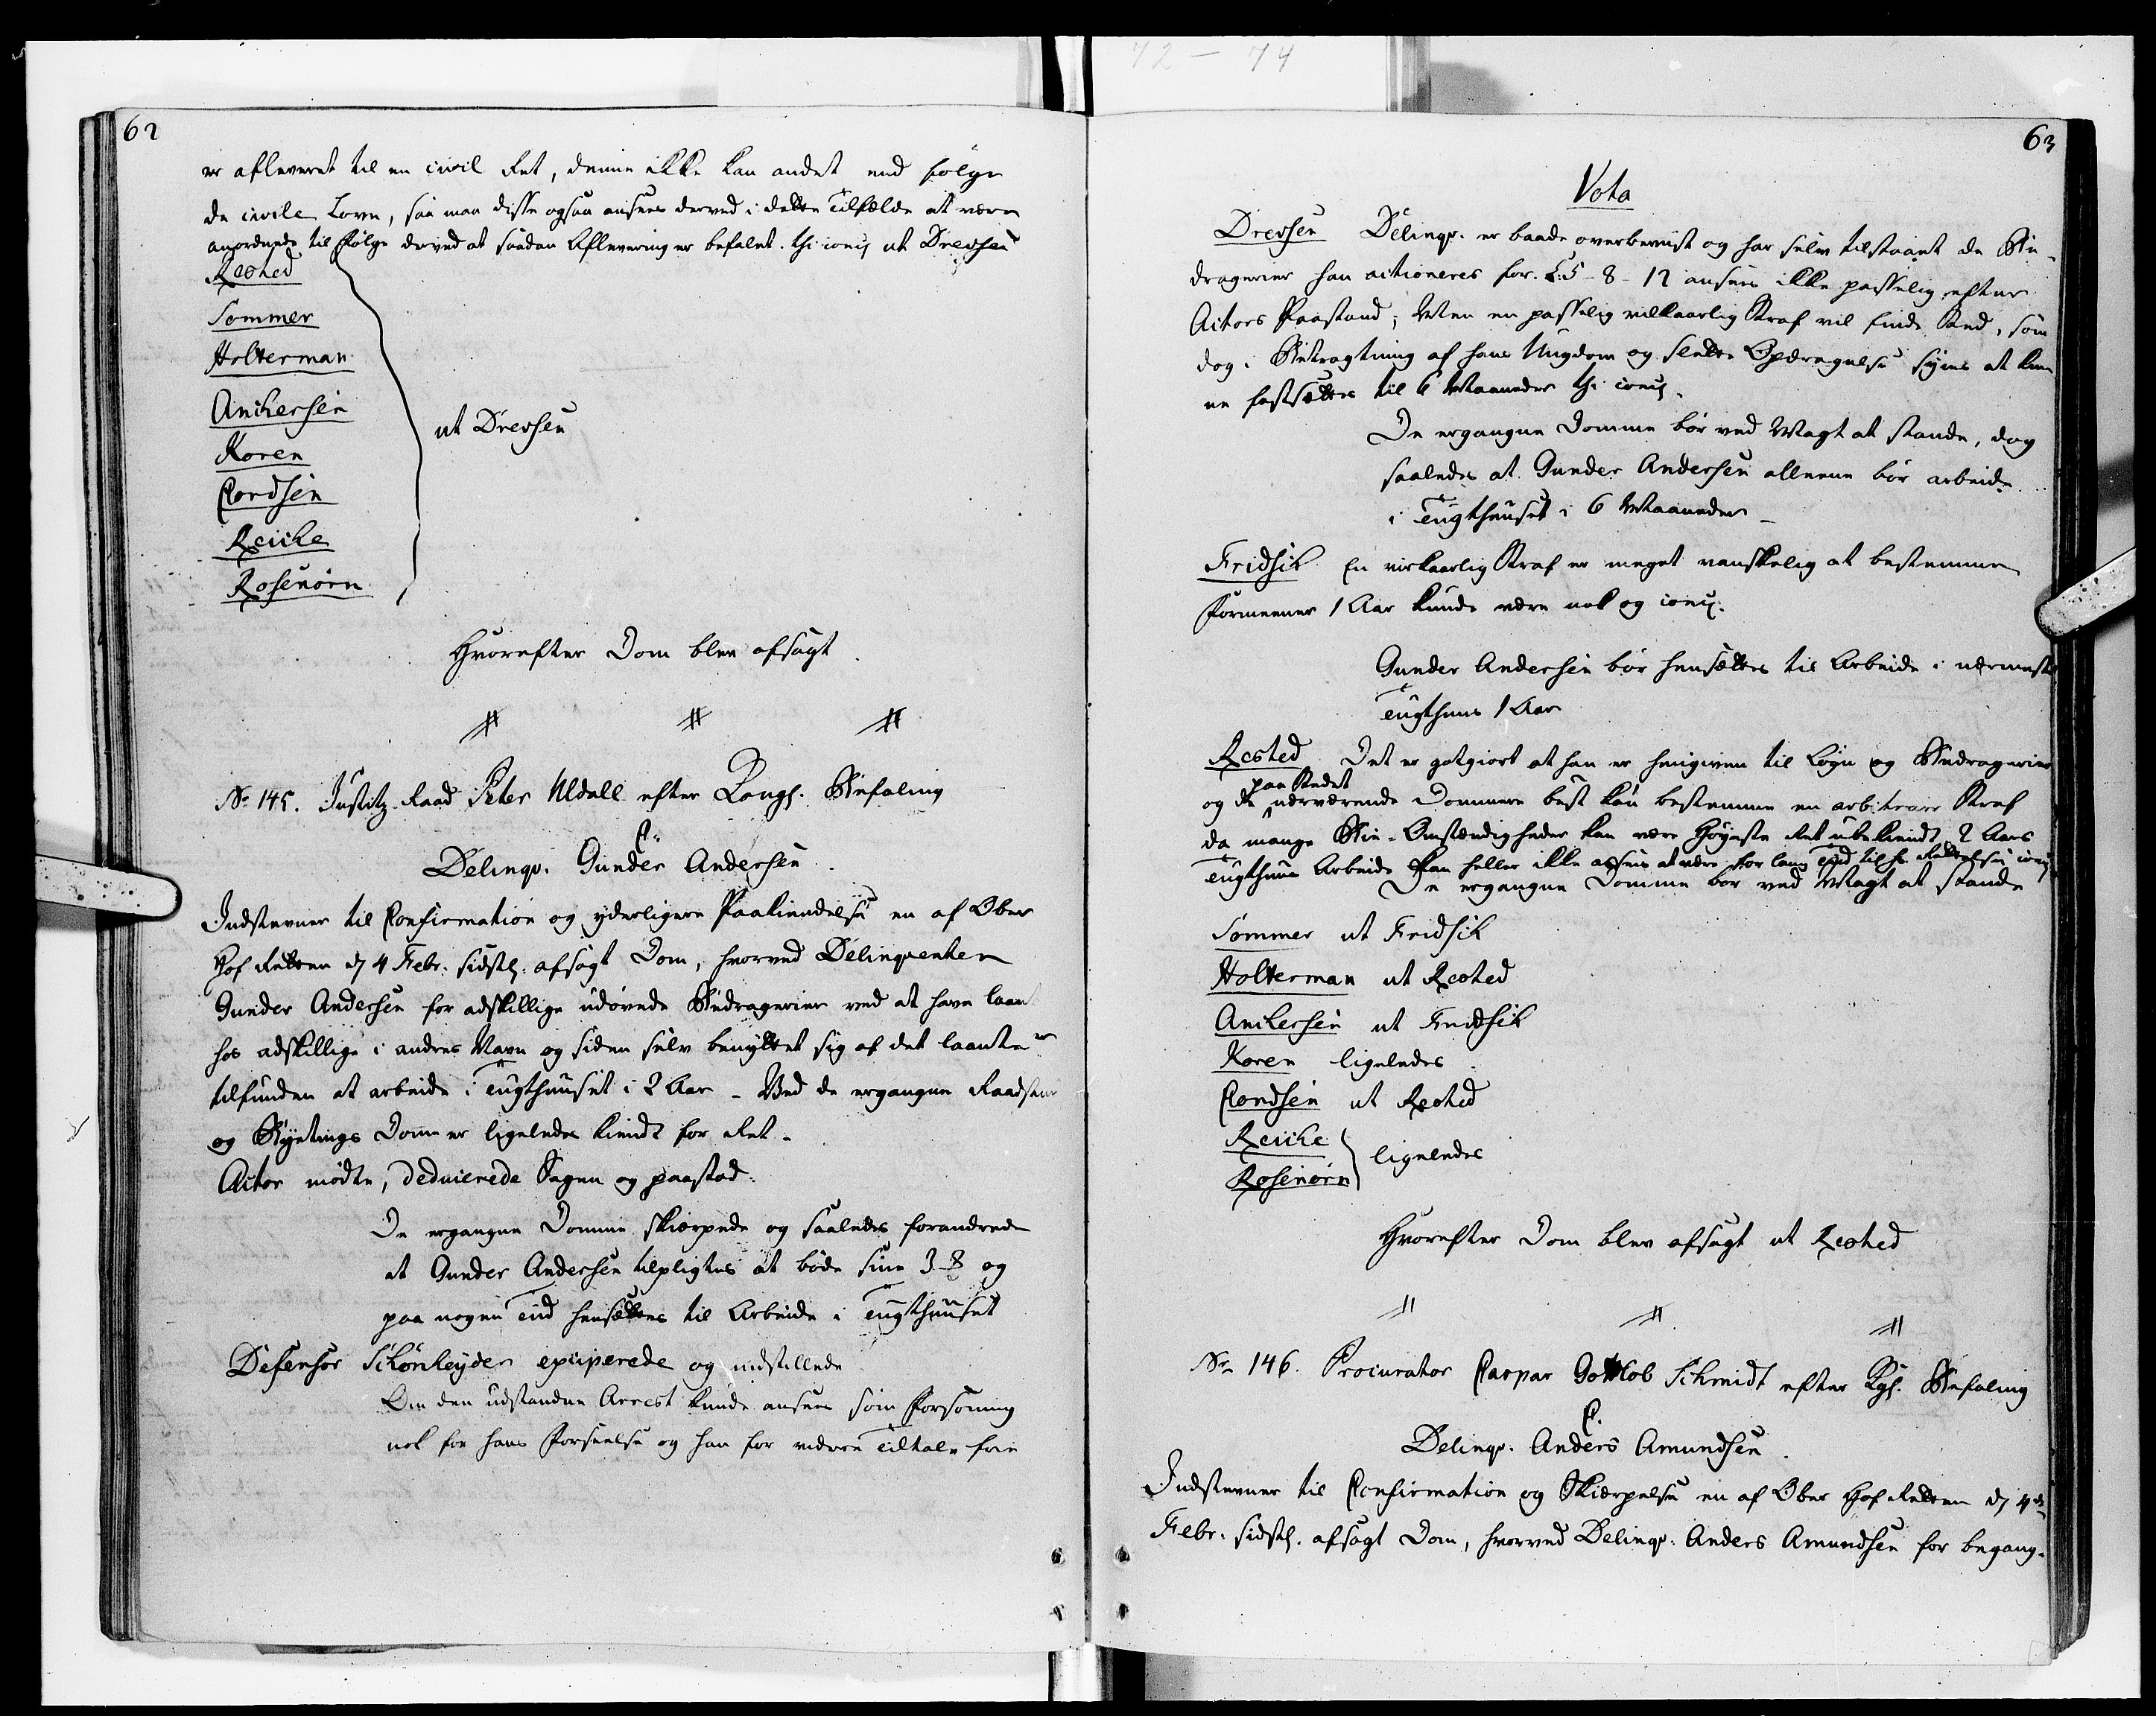 72 – 74
62
er afleveret til en civil Ret, denne ikke kan andet end følge
de civile Love, saa maa disse ogsaa ansees derved i dette Tilfælde at være
anordnede til Følge derved at saadan Aflevering er befalet. thi conc: ut Dreyer
Rested
Sommer
Holterman
Anchersen
ut Dreyer
Koren
Cordsen
Reiche
Rosenørn
Hvorefter Dom blev afsagt
No 145. Justitz-Raad Peter Uldall efter Kongl. Befaling
C:
Delinqv. Gunder Andersen
Indstevner til Confirmation og yderligere Paakiendelse en af Ober
Hof Retten d. 4 Febr. sidstl. afsagt Dom, hvorved Delinqventen
Gunder Andersen for adskillige udøvede Bedragerier ved at have laant
hos adskillige i andres Navn og siden selv benyttet sig af det laante er
tilfunden at arbeide i Tugthuuset i 2 Aar – Ved de ergangne Raadstue
og Byetings Domme er ligeledes kiendt for Ret.
Actor mødte, deducerede Sagen og paastod.
De ergangne Domme skiærpede og saaledes forandrede
at Gunder Andersen tilpligtes at bøde sine 3 og
paa nogen Tiid hensættes til Arbeide i Tugthuuset
Defensor Schönheyder exciperede og indstillede
Om den udstandne Arrest kunde ansees som Forsoning
nok for hans Forseelse og han for videre Tiltale frie
63
Vota
Dreyer Delinqv. er baade overbeviist og har selv tilstaaet de Be-
dragerier han actioneres for. L: 5 - 8 - 12 ansees ikke passelig efter
Actors Paastand; Men en passelig vilkaarlig Straf vil finde Sted, som
dog i Betragtning af hans Ungdom og slette Opdragelse synes at kun-
ne fastsættes til 6 Maaneder thi conc:
De ergangne Domme bør ved Magt at stande, dog
saaledes at Gunder Andersen alleene bør arbeide
i Tugthuuset i 6 Maaneder
Fridsch En vilkaarlig Straf er meget vanskelig at bestemme
Formeener 1 Aar kunde være nok og conc:
Gunder Andersen bør hensættes til Arbeide i nærmeste
Tugthuus 1 Aar
Rested Det er gotgiort at han er hengiven til Løgn og Bedragerier
paa Stedet
og de nærværende Dommere best kan bestemme en arbitrair Straf
da mange Bie-Omstændigheder kan være Høyeste Ret ubekiendt 2 Aars
Tugthuus Arbeide kan heller ikke ansees at være for lang Tiid til hs Rettelse conc:
De ergangne Domme bør ved Magt at stande
Sommer ut Fridsch
Holterman ut Rested
Anchersen ut Fridsch
Koren ligeledes
Cordsen ut Rested
Reiche
ligeledes
Rosenørn
Hvorefter Dom blev afsagt ut Rested
No 146. Procurator Caspar Gottlob Schmidt efter Kgl. Befaling
C.
Delinqv. Anders Amundsen
Indstevner til Confirmation og Skiærpelse en af Ober Hof Retten d. 4de
Febr. sidstl. afsagt Dom, hvorved Delinqv. Anders Amundsen for begang-